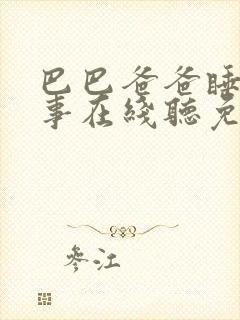 巴巴爸爸睡
事在线聽免
參江